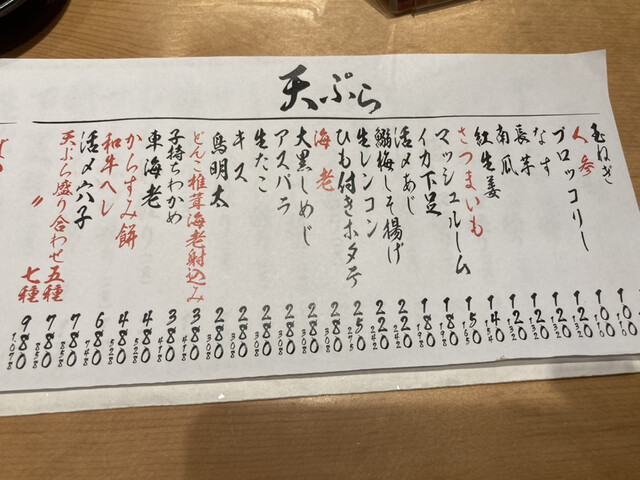 天ぷら
玉ねぎ 100 110
人参 100 110
ブロッコリー 120 132
なす 120 132
長芋 120 132
南瓜 120 132
紅生姜 140 154
さつまいも 150 165
マッシュルーム 180 198
イカ下足 180 198
活〆あじ 220 242
鰯梅しそ揚げ 220 242
生レンコン 250
ひも付きホタテ 280 308
海老 280 308
大黒しめじ 280 308
アスパラ 280 308
生たこ 280 308
キス 280 308
烏明太 280 308
どんこ椎茸海老射込み 380 418
子持ちわかめ 380 418
車海老 480 528
からすみ餅 480 528
和牛ヘレ 680 748
活〆穴子 780 858
天ぷら盛り合わせ五種 780 858
〃 七種 980 1078